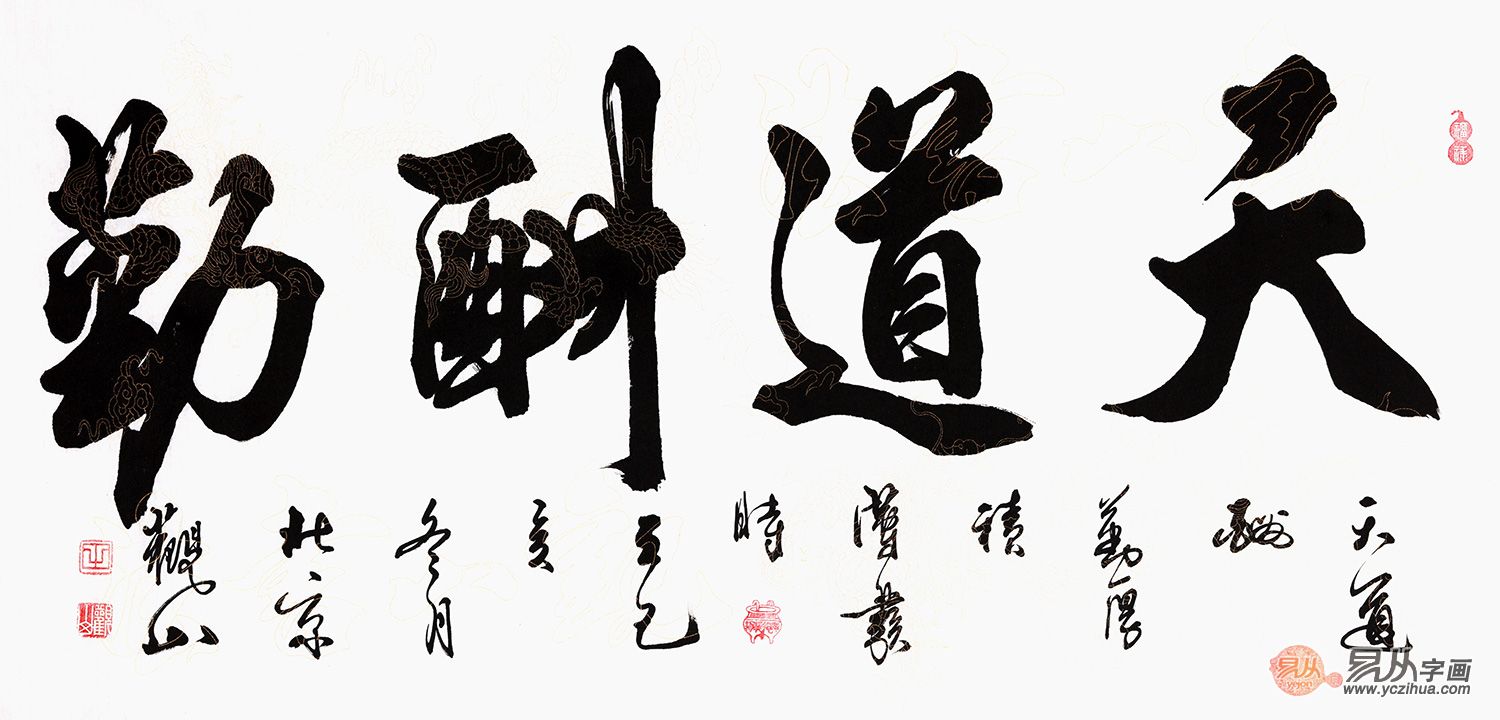 天道酬勤
天道
酬
勤厚
積
薄發
時
己
亥
冬月
北京
觀山
易从
易从字画
www.yczihua.com